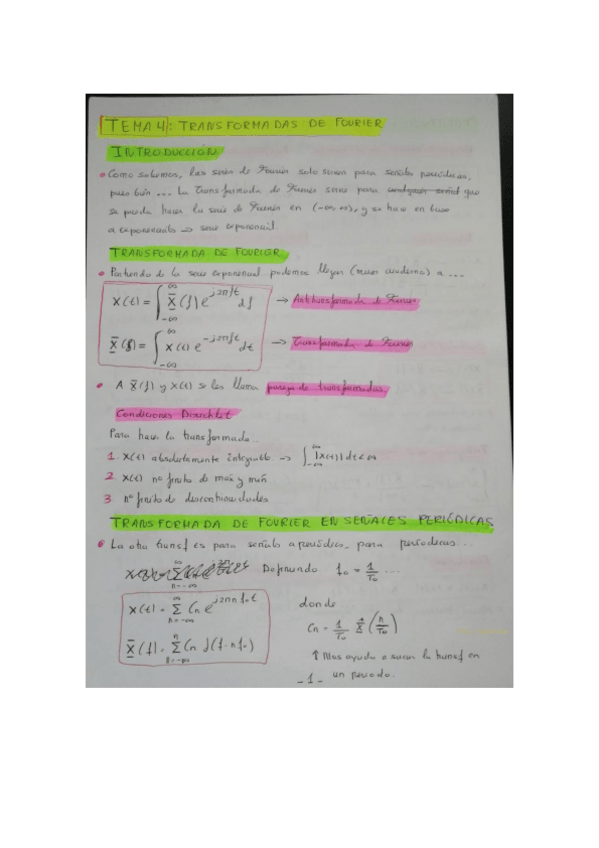 TEMA 4: TRANSFORMADAS DE FOURIER
INTRODUCCIÓN
• Como sabemos, las series de Fourier solo sirven para señales periódicas,
pues bien... La Transformada de Fourier sirve para cualquier señal que
se pueda hacer la serie de Fourier en (-∞,∞), y se hace en base
a exponenciales => serie exponencial.
TRANSFORMADA DE FOURIER
• Partiendo de la serie exponencial podemos llegar (mirar cuaderno) a ...
X(t) = ∫_{-∞}^{∞} X(f) e^{j2πft} df → Antitransformada de Fourier
X(f) = ∫_{-∞}^{∞} x(t) e^{-j2πft} dt → Transformada de Fourier
• A X(f) y x(t) se les llama pareja de transformadas.
Condiciones Dirichlet
Para hacer la transformada...
1. X(t) absolutamente integrable => ∫_{-∞}^{∞} |x(t)| dt < ∞
2. X(t) nº finito de max y min
3. nº finito de discontinuidades
TRANSFORMADA DE FOURIER EN SEÑALES PERIÓDICAS
• La otra transf es para señales aperiódicas, para periodicas...
Definiendo f₀ = 1/T₀ ...
X(t) = Σ_{n=-∞}^{∞} Cn e^{j2πnf₀t} donde
Cn = 1/T₀ X(n/T₀)
X(f) = Σ_{n=-∞} Cn δ(f-nf₀)
↑ Nos ayuda a sacar la transf en
un periodo.
- 1 -